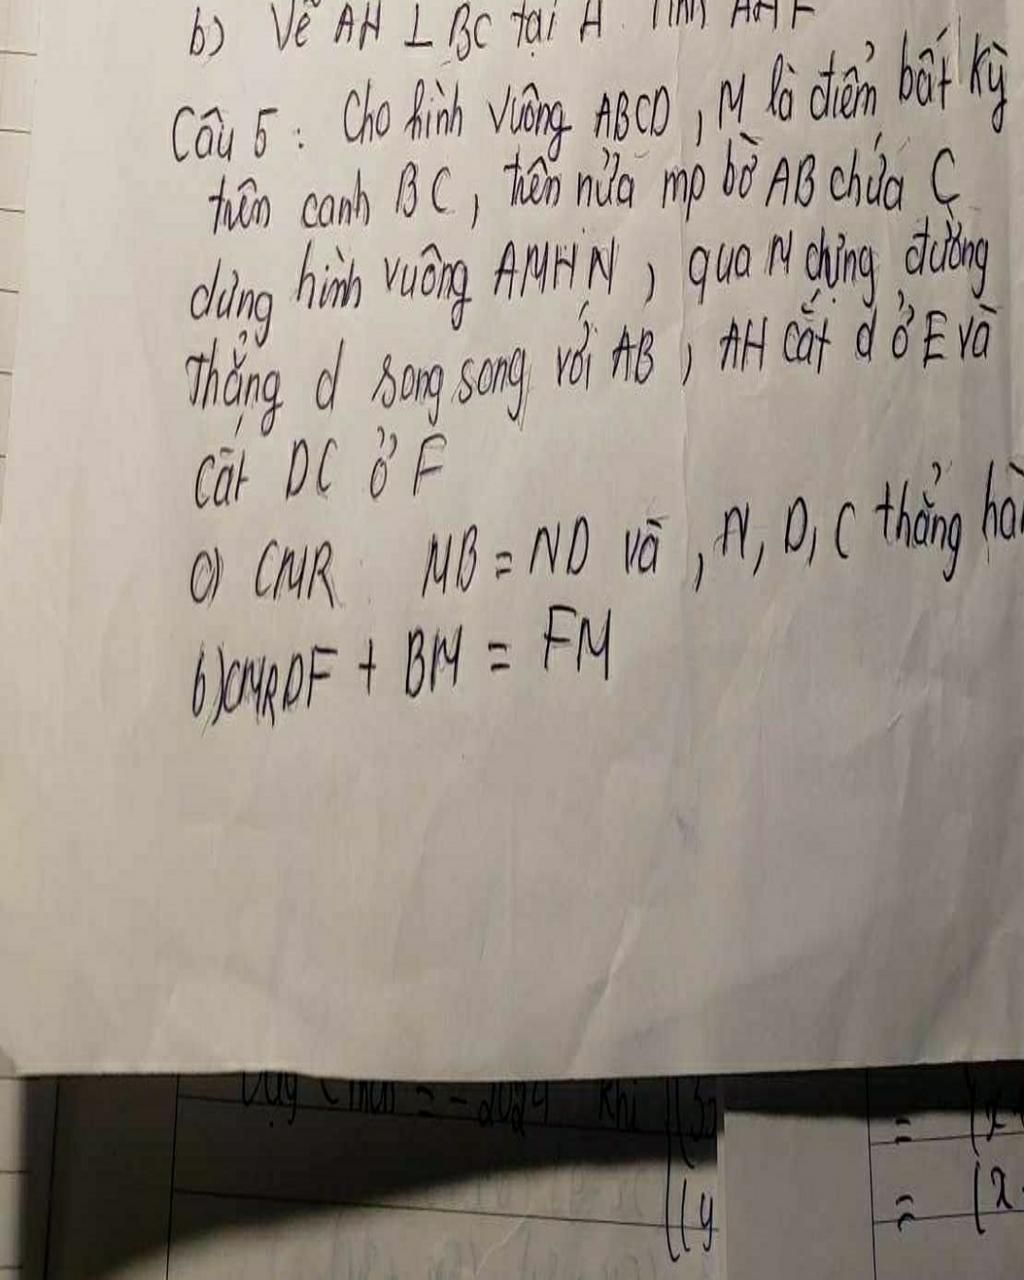 b) Vẽ AH ⊥ BC tại H. Tính
Câu 5: Cho hình vuông ABCD, M là điểm bất kỳ
trên canh BC, trên nửa mp bờ AB chứa C
dựng hình vuông AMHN, qua M dựng đường
thẳng d song song với AB, AH cắt d ở E và
Cắt DC ở F
a) CMR MB = ND và, N, D, C thẳng
b) CMR DF + BM = FM
= -2024 khi
=
=